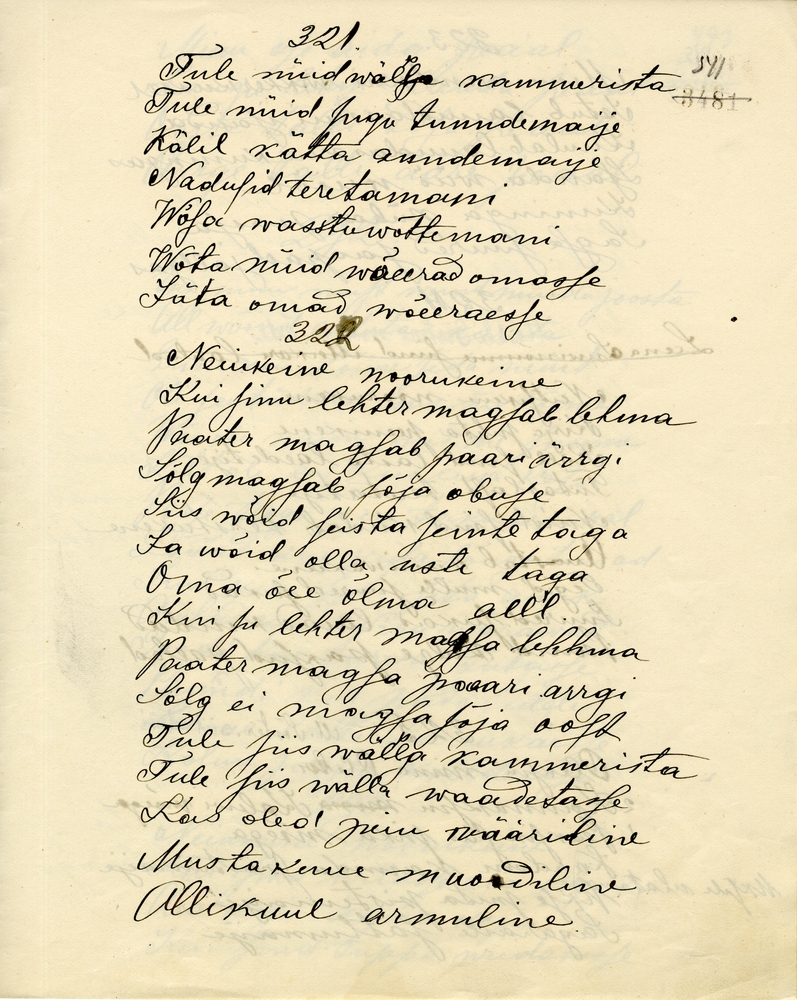 321.
541
3481
Tule nüid wälja kammerista
Tule nüid juqu tunndemaije
Kälil kätta anndemaije
Nadusid teretamani
Wõsa wasstuwõttemani
Wõta nüid wõeerad omasse
Jäta omad wõeeraesse
322
Neiukeine noorukeine
Kui sinu lehter magsab lehma
Paater magsab paari ärrgi
Sõlg magsab sõja obuse
Siis wõid seista seinte taga
Ja wõid olla uste taga
Oma õee õlma alll.
Kui su lehter magsa lehhma
Paater magsa paari arrgi
Sõlg ei magsa sõja oost
Tule siis wälla kammerista
Tule siis wälla waadetasse
Kas oled piiu määriline
Musta kuue muodiline
Allikuul armuline